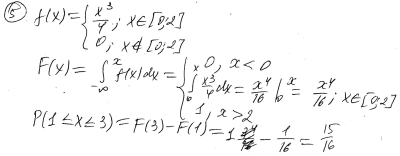 ⑤ f(x) = { x³/4, x ∈ [0;2]
0, x ∉ [0;2]
F(x) = ∫_{-∞}^{x} f(x)dx = { 0, x < 0
∫_{0}^{x} x³/4 dx = x⁴/16 |_{0}^{x} = x⁴/16; x ∈ [0;2]
1, x > 2
P(1 ≤ x ≤ 3) = F(3) - F(1) = 1 - 1/16 = 15/16